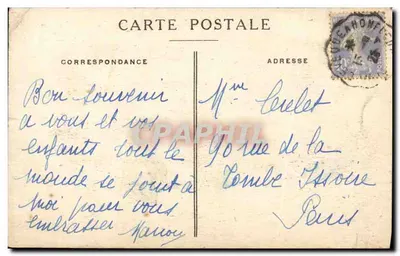 CARTE POSTALE
CORRESPONDANCE
ADRESSE
Bon souvenir
a vous et vos
enfants tout le
monde se joint à
moi pour vous
embrasser
Mme
90 rue de la
Tombe Issoire
Paris